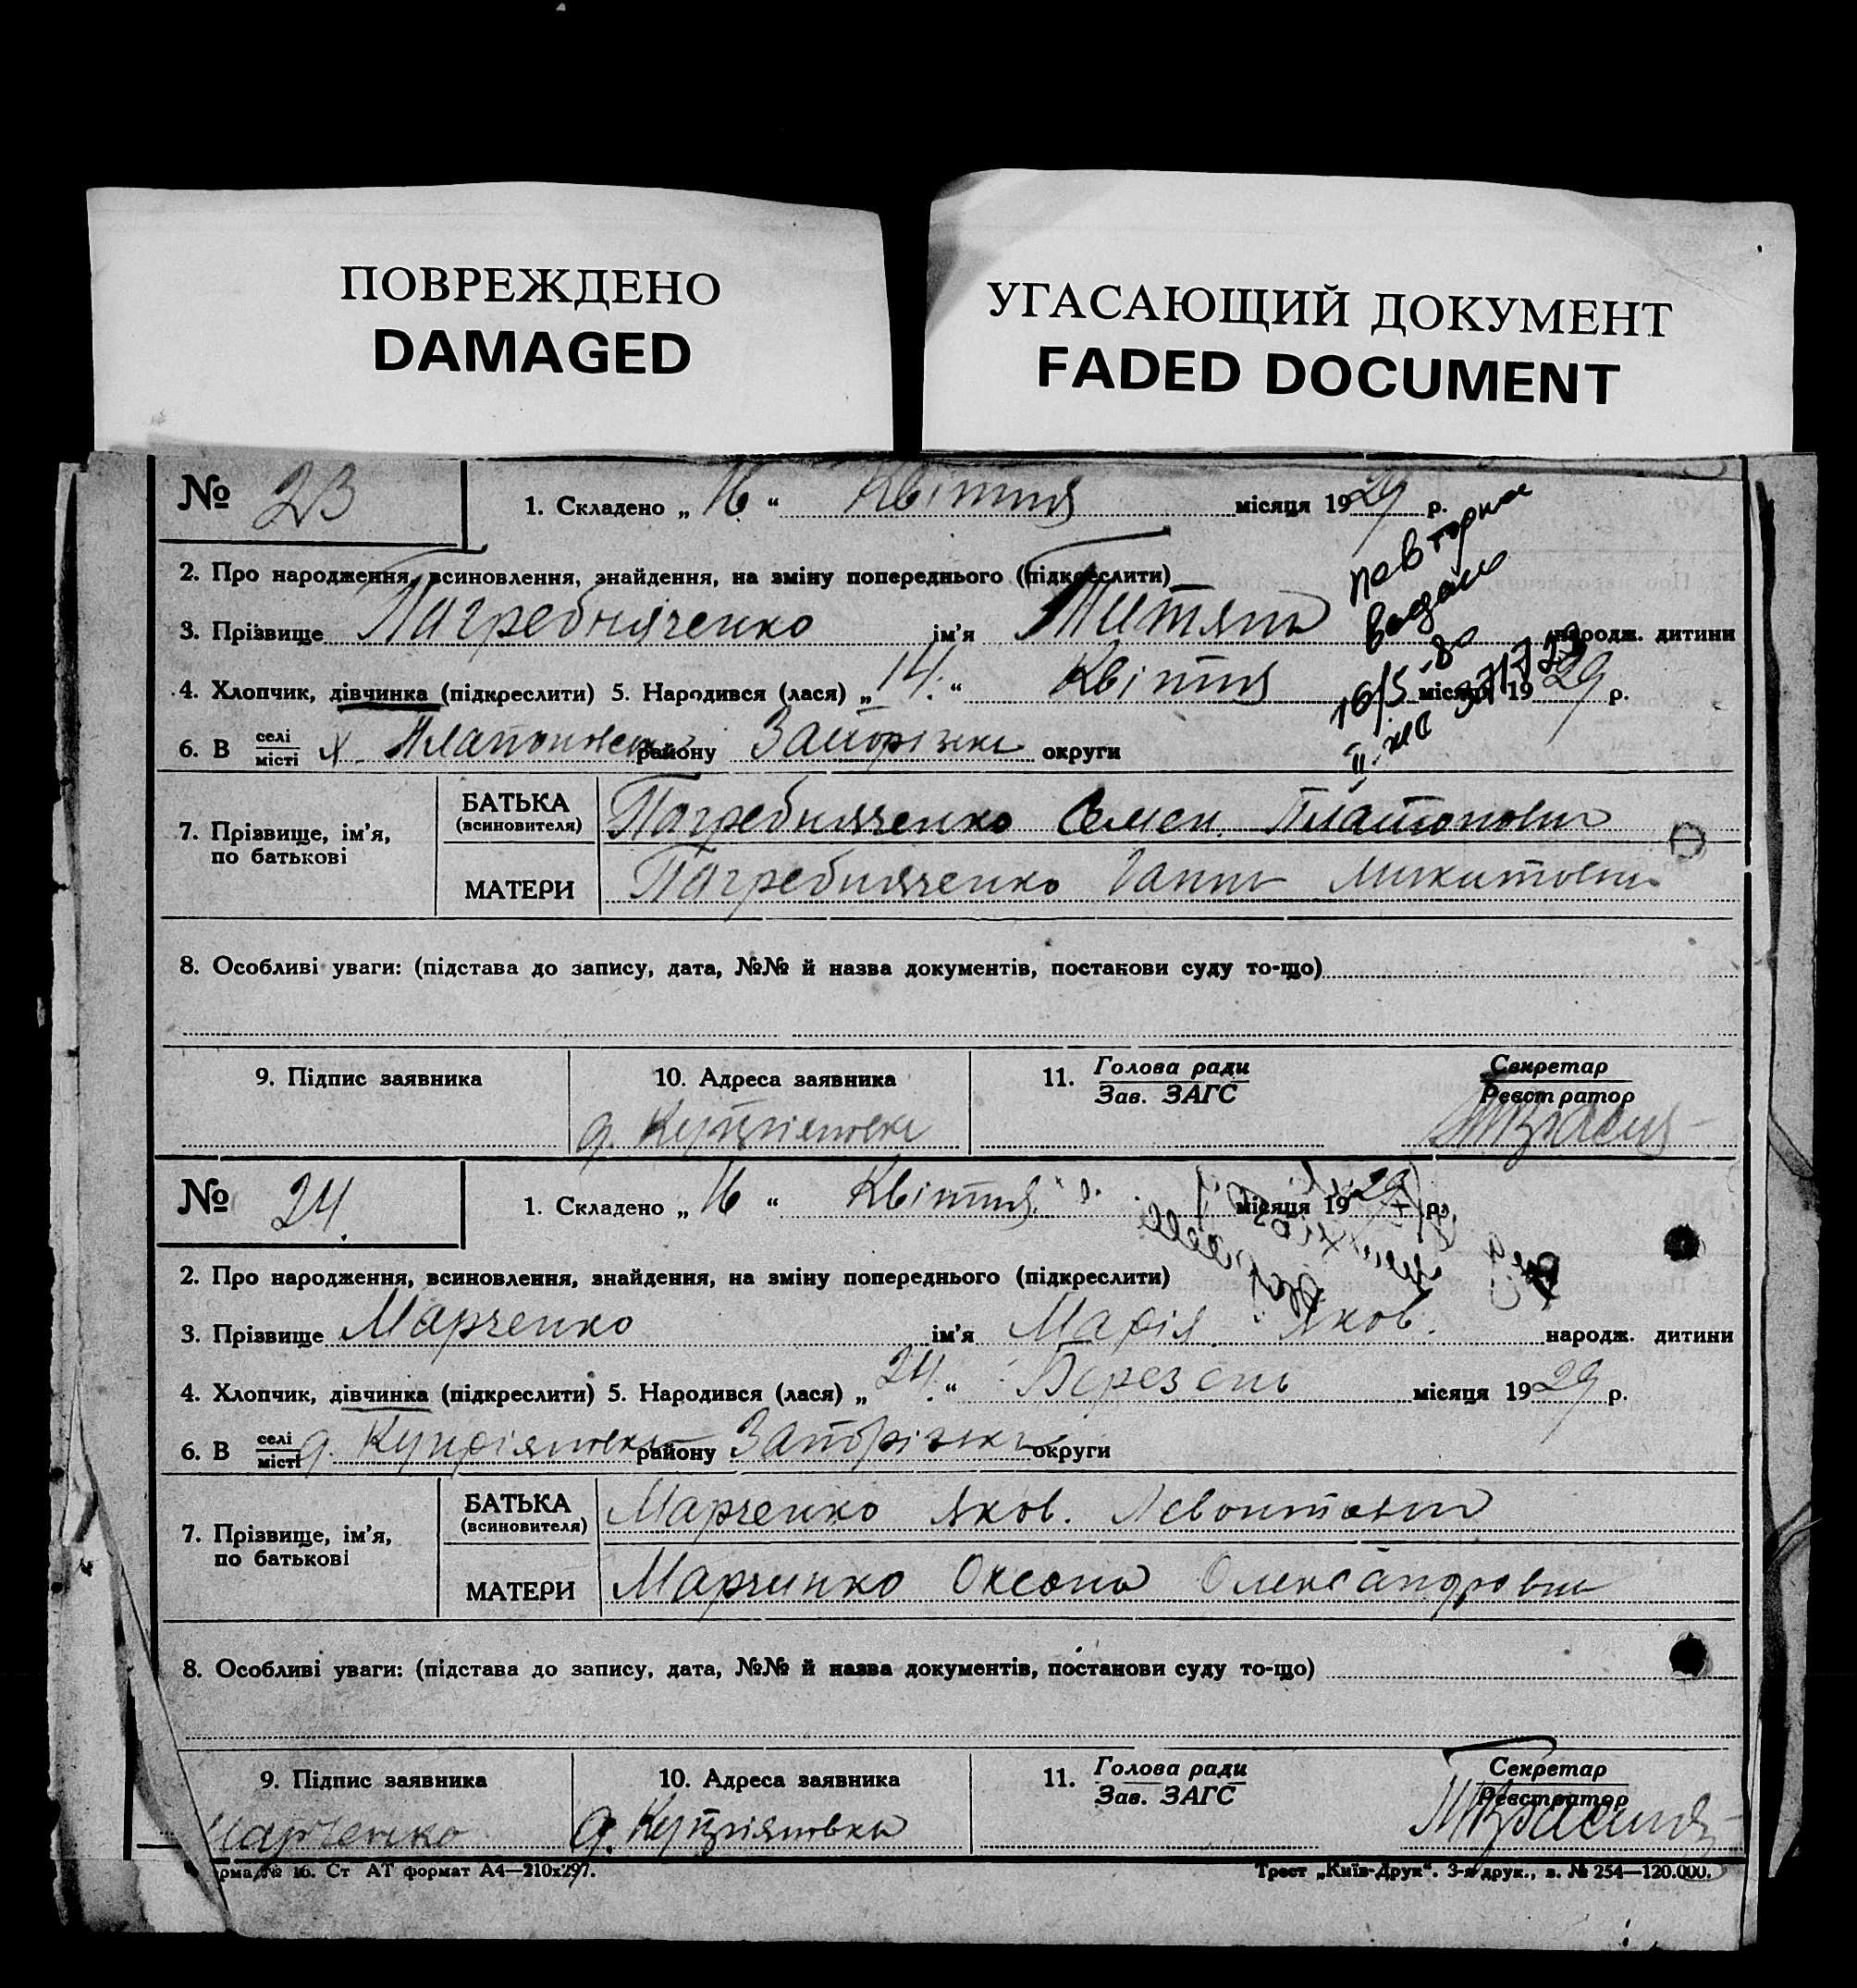 ПОВРЕЖДЕНО
DAMAGED
УГАСАЮЩИЙ ДОКУМЕНТ
FADED DOCUMENT
№ 23
1. Складено „ 16 “ Квітня місяця 1929 р.
2. Про народження, всиновлення, знайдення, на зміну попереднього (підкреслити)
3. Прізвище Пагребняченко ім’я народж. дитини
повторное
выдано
16/5-80
4. Хлопчик, дівчинка (підкреслити) 5. Народився (лася) „ 14. “ Квітня місяця 1929 р.
6. В селі/місті х. району Запорізьке округи
7. Прізвище, ім’я, по батькові
БАТЬКА (всиновителя) Пагребняченко Семен Платонович
МАТЕРИ Пагребняченко Ганна Микитовна
8. Особливі уваги: (підстава до запису, дата, №№ й назва документів, постанови суду то-що)
9. Підпис заявника
10. Адреса заявника
11. Голова ради / Зав. ЗАГС
Секретар / Реєстратор
№ 24.
1. Складено „ 16 “ Квітня місяця 1929 р.
2. Про народження, всиновлення, знайдення, на зміну попереднього (підкреслити)
3. Прізвище Марченко ім’я Марія Яков. народж. дитини
4. Хлопчик, дівчинка (підкреслити) 5. Народився (лася) „ 24. “ Березень місяця 1929 р.
6. В селі/місті д. району Запорізьке округи
7. Прізвище, ім’я, по батькові
БАТЬКА (всиновителя) Марченко Яков.
МАТЕРИ Марченко Оксана Олександровна
8. Особливі уваги: (підстава до запису, дата, №№ й назва документів, постанови суду то-що)
9. Підпис заявника
Марченко
10. Адреса заявника
д. Купріяновка
11. Голова ради / Зав. ЗАГС
Секретар / Реєстратор
орма № 16. Ст АТ формат А4—210х297.
Трест „Київ-Друк“. 3-я друк., в. № 254—120.000.